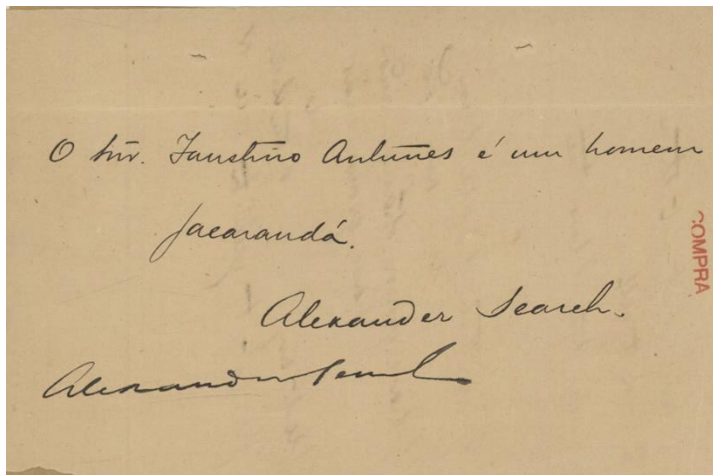 O Snr. Faustino Antunes é um homem
jacarandá.
Alexander Search.
Alexander Search
COMPRA